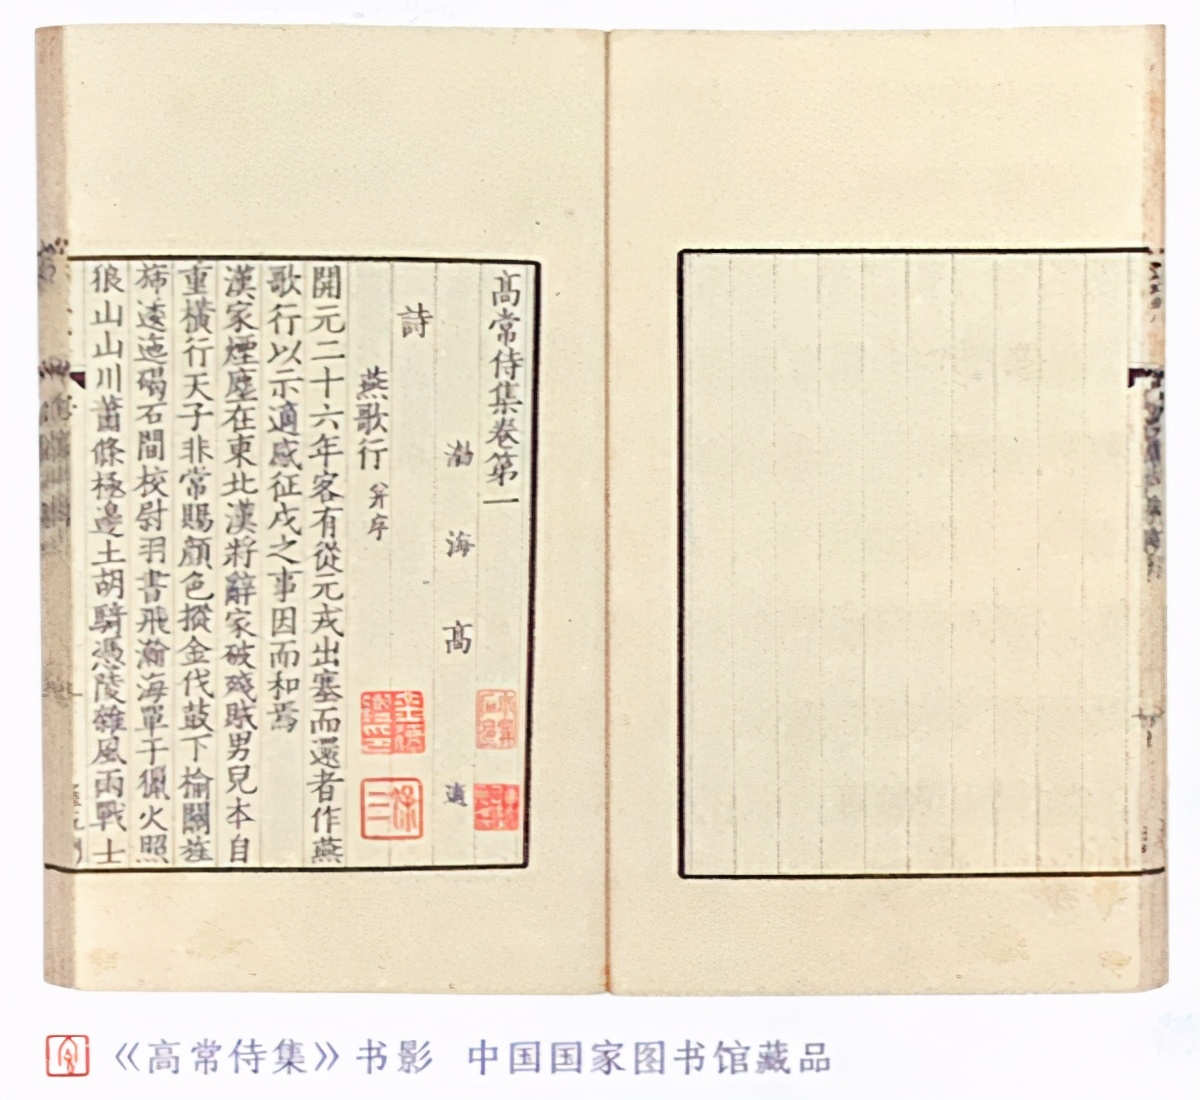 髙常侍集卷第一
渤海髙適
詩
燕歌行 并序
開元二十六年客有從元戎出塞而還者作燕
歌行以示適感征戍之事因而和焉
漢家煙塵在東北漢將辭家破殘賊男兒本自
重橫行天子非常賜顏色摐金伐鼓下榆關旌
斾逶迤碣石間校尉羽書飛瀚海單于獵火照
狼山山川蕭條極邊土胡騎憑陵雜風雨戰士
《高常侍集》书影 中国国家图书馆藏品